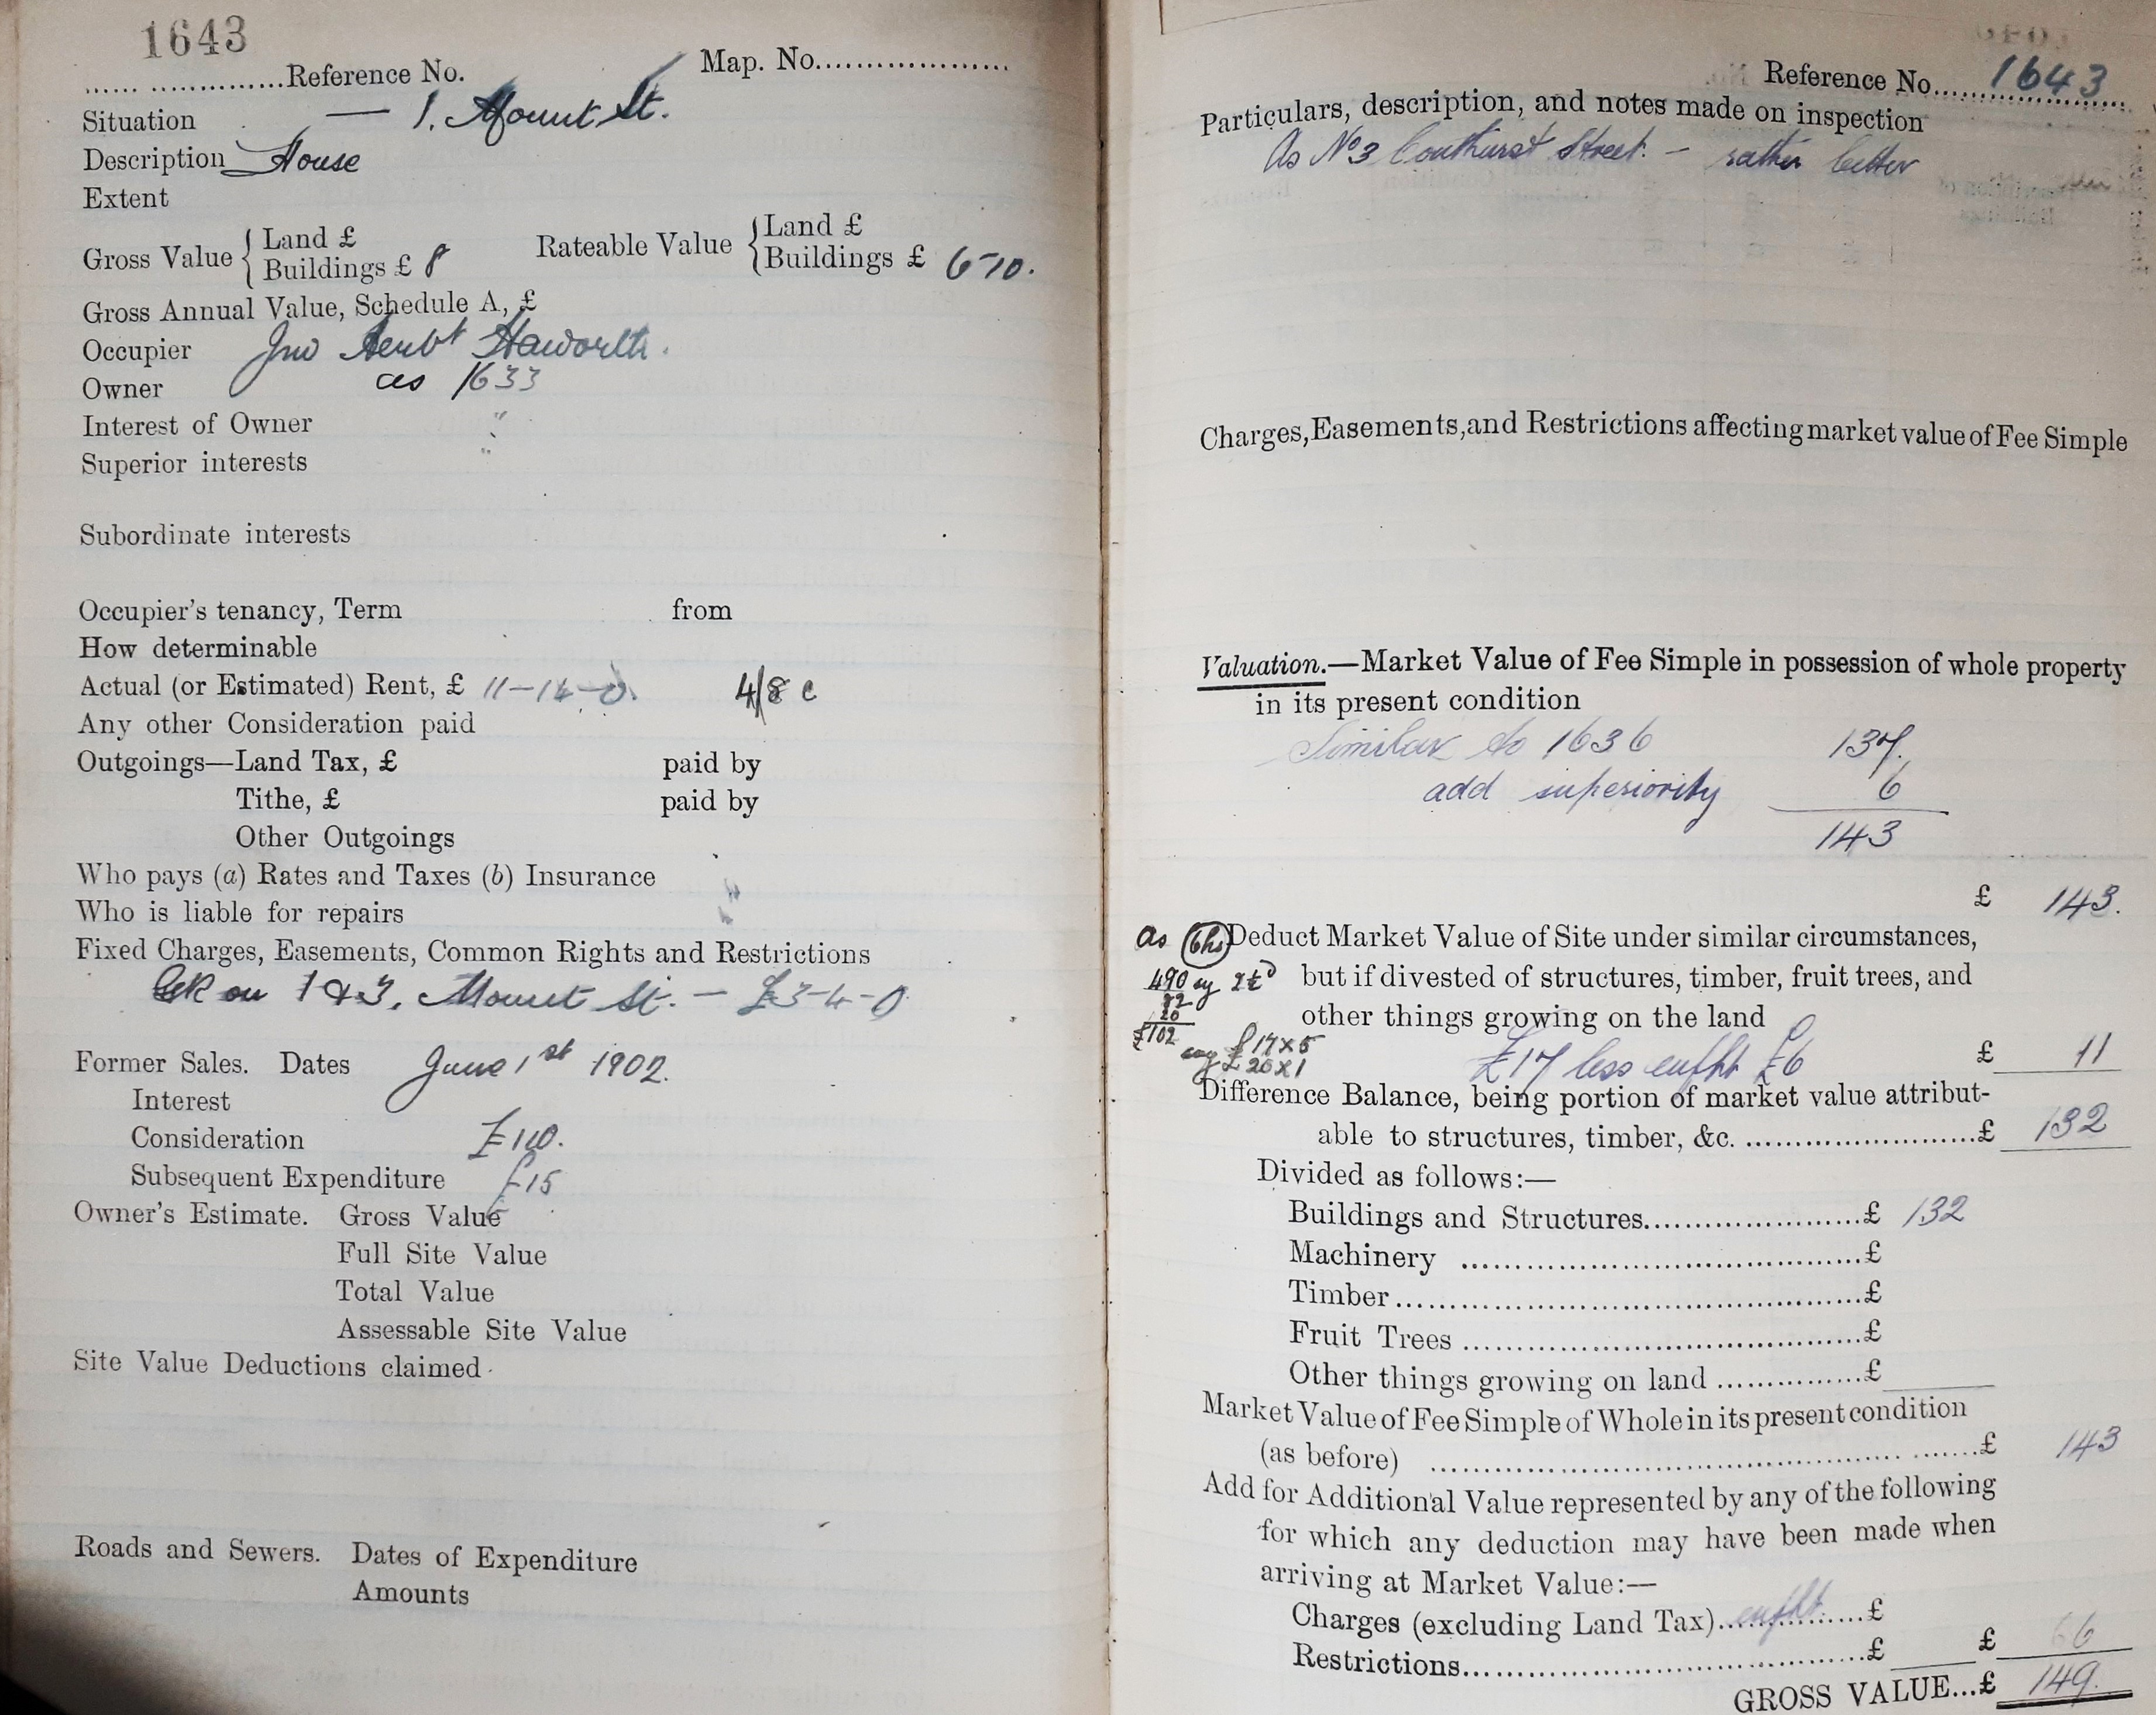 1643
Reference No. Map. No.
Situation — 1. Mount St.
Description House
Extent
Gross Value { Land £
Buildings £ 8
Rateable Value { Land £
Buildings £ 6-10.
Gross Annual Value, Schedule A, £
Occupier Jno Herbt Haworth.
Owner as 1633
Interest of Owner "
Superior interests "
Subordinate interests
Occupier's tenancy, Term from
How determinable
Actual (or Estimated) Rent, £ 11-14-0. 4/8 c
Any other Consideration paid
Outgoings—Land Tax, £ paid by
Tithe, £ paid by
Other Outgoings
Who pays (a) Rates and Taxes (b) Insurance "
Who is liable for repairs "
Fixed Charges, Easements, Common Rights and Restrictions
GR on 1 & 3, Mount St. — £3-4-0
Former Sales. Dates June 1st 1902.
Interest
Consideration £110.
Subsequent Expenditure £15
Owner's Estimate. Gross Value
Full Site Value
Total Value
Assessable Site Value
Site Value Deductions claimed
Roads and Sewers. Dates of Expenditure
Amounts
Reference No. 1643
Particulars, description, and notes made on inspection
As No 3 Street. - rather better
Charges, Easements, and Restrictions affecting market value of Fee Simple
Valuation.—Market Value of Fee Simple in possession of whole property
in its present condition
Similar to 1636 137.
add superiority 6
143
£ 143.
as (6hs) Deduct Market Value of Site under similar circumstances,
490 sy but if divested of structures, timber, fruit trees, and
82
20
other things growing on the land
£102
say £17 x 5
£20 x 1
£17 less eufht £6 £ 11
Difference Balance, being portion of market value attribut-
able to structures, timber, &c. £ 132
Divided as follows:—
Buildings and Structures £ 132
Machinery £
Timber £
Fruit Trees £
Other things growing on land £
Market Value of Fee Simple of Whole in its present condition
(as before) £ 143
Add for Additional Value represented by any of the following
for which any deduction may have been made when
arriving at Market Value:—
Charges (excluding Land Tax) eufht. £
Restrictions £ £ 6
GROSS VALUE...£ 149.